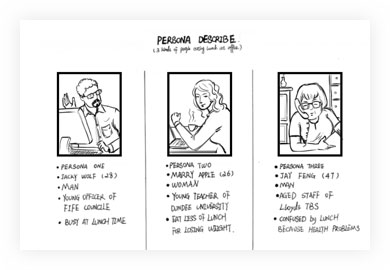 PERSONA DESCRIBE.
(3 kinds of people eating lunch in office.)
• PERSONA ONE
• JACKY WOLF (28)
• MAN
• YOUNG OFFICER OF
FIFE COUNCILE
• BUSY AT LUNCH TIME
• PERSONA TWO
• MARRY APPLE (26)
• WOMAN
• YOUNG TEACHER OF
DUNDEE UNIVERSITY
• EAT LESS OF LUNCH
FOR LOSING WEIGHT.
• PERSONA THREE
• JAY FENG (47)
• MAN
• AGED STAFF OF
Lloyds TBS
• CONFUSED BY LUNCH
BECAUSE HEALTH PROBLEMS